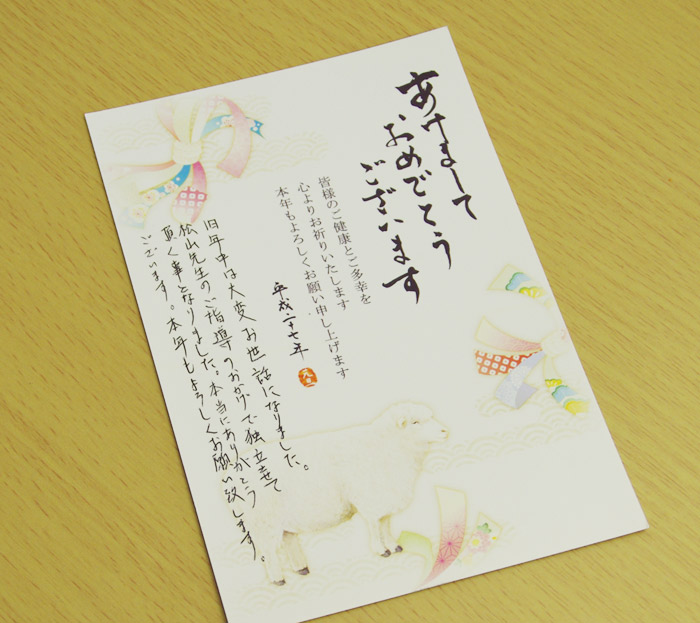 あけまして
おめでとう
ございます
皆様のご健康とご多幸を
心よりお祈りいたします
本年もよろしくお願い申し上げます
平成二十七年
元旦
旧年中は大変お世話になりました。
松山先生のご指導のおかげで独立させて
頂く事となりました。本当にありがとう
ございます。本年もよろしくお願い致します。